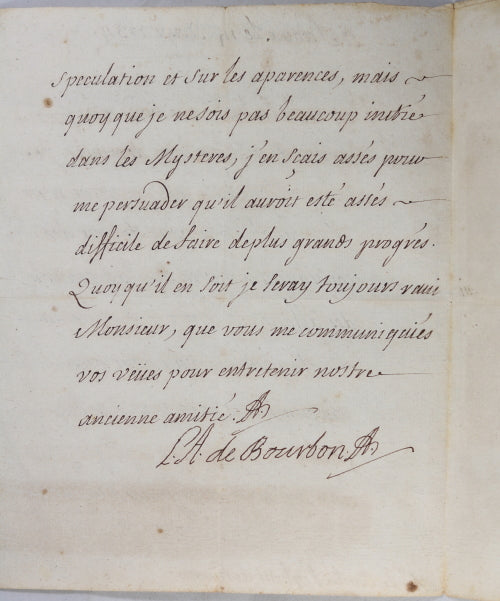 speculation et sur les aparences, mais
quoy que je ne sois pas beaucoup initié
dans les Mysteres, j'en sçais assés pour
me persuader qu'il auroit esté assés
difficile de faire de plus grands progrés.
Quoy qu'il en soit je seray toujours ravi
Monsieur, que vous me communiquiés
vos veües pour entretenir nostre
ancienne amitié.
L. A. de Bourbon.